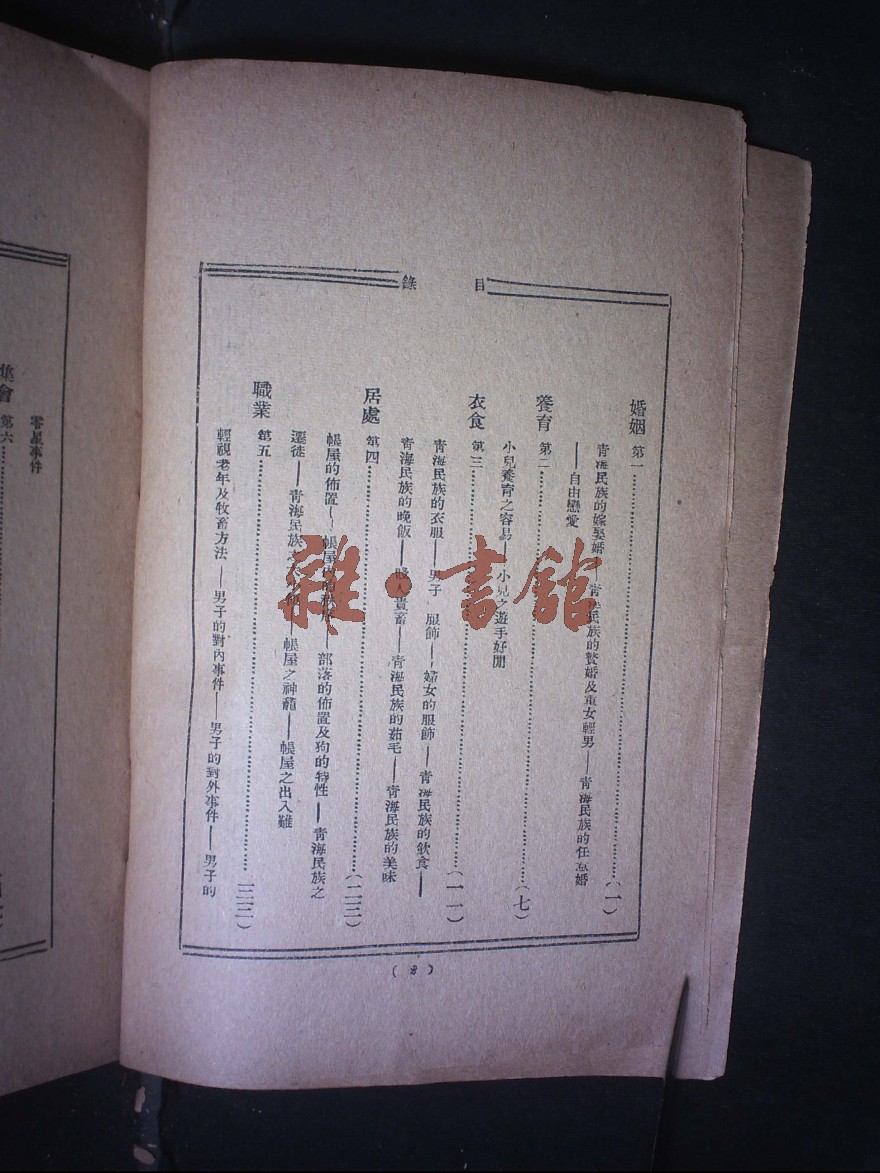 目錄
婚姻 第一……(一)
青海民族的嫁娶婚——青海民族的贅婚及重女輕男——青海民族的任意婚
——自由戀愛
養育 第二……(七)
小兒養育之容易——小兒之遊手好閒
衣食 第三……(一一)
青海民族的衣服——男子 服飾——婦女的服飾——青海民族的飲食——
青海民族的晚飯——賤人貴畜——青海民族的茹毛——青海民族的美味
居處 第四……(二三)
帳屋的佈置——帳屋——部落的佈置及狗的特性——青海民族之
遷徙——青海民族之——帳屋之神龕——帳屋之出入難
職業 第五……三三)
輕視老年及牧畜方法——男子的對內事件——男子的對外事件——男子的
零星事件
集會 第六……
雜·書館